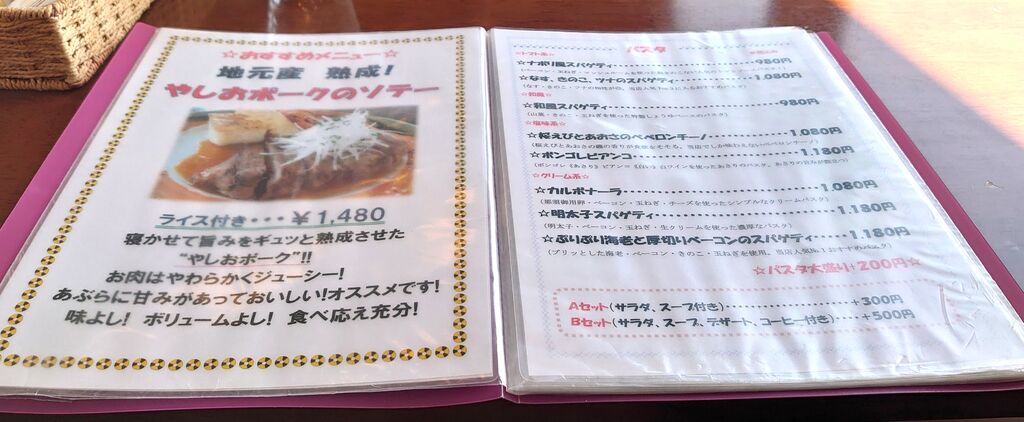 ☆おすすめメニュー☆
地元産 熟成!
やしおポークのソテー
ライス付き・・・￥1,480
寝かせて旨みをギュッと熟成させた
“やしおポーク”!!
お肉はやわらかくジューシー!
あぶらに甘みがあっておいしい!オススメです!
味よし! ボリュームよし! 食べ応え充分!
パスタ
☆トマト系☆
☆ナポリ風スパゲティ 980円
☆なす、きのこ、ツナのスパゲティ 1,080円
☆和風☆
☆和風スパゲティ 980円
☆塩味系☆
☆桜えびとあおさのペペロンチーノ 1,080円
☆ボンゴレビアンコ 1,180円
☆クリーム系☆
☆カルボナーラ 1,080円
☆明太子スパゲティ 1,180円
(明太子・ベーコン・玉ねぎ・生クリームを使った濃厚なパスタ)
☆ぷりぷり海老と厚切りベーコンのスパゲティ 1,180円
☆パスタ大盛り+200円☆
Aセット(サラダ、スープ付き) +300円
Bセット(サラダ、スープ、デザート、コーヒー付き) +500円